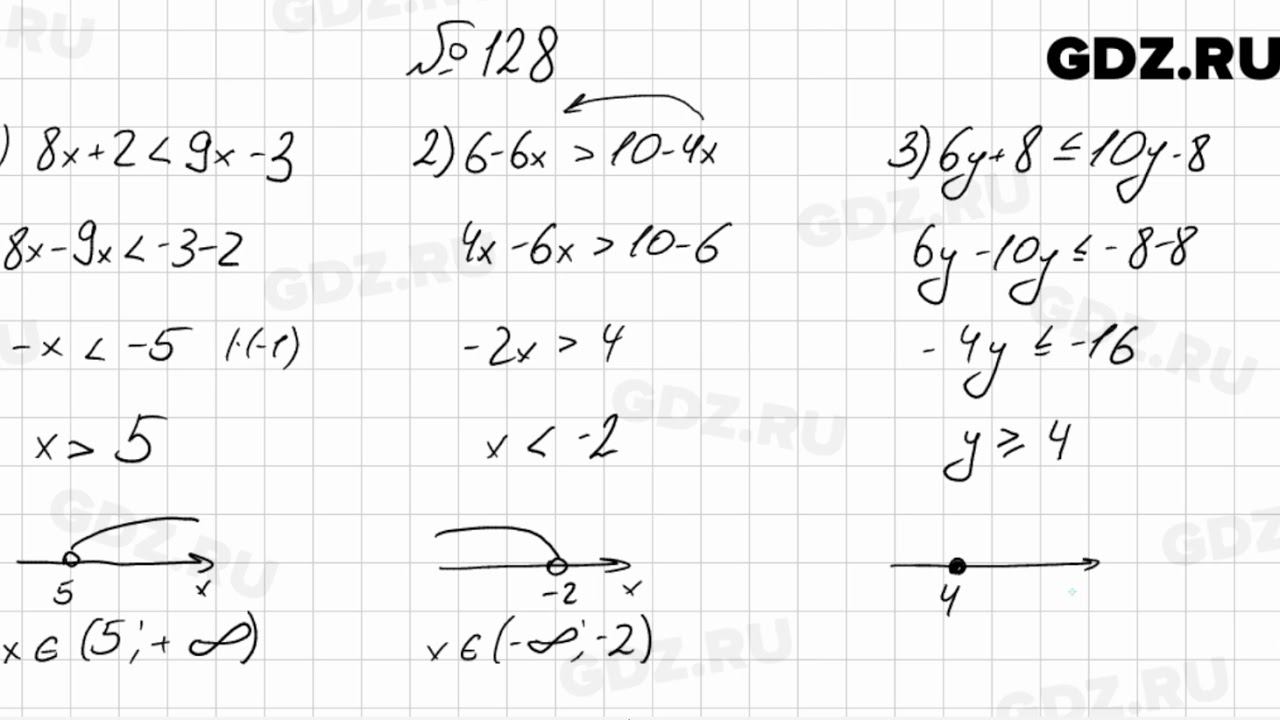 № 128
GDZ.RU
) 8x+2<9x-3
8x-9x<-3-2
-x < -5 |·(-1)
x > 5
5 x
x ∈ (5; +∞)
2) 6-6x > 10-4x
4x-6x > 10-6
-2x > 4
x < -2
-2 x
x ∈ (-∞; -2)
3) 6y+8 ≤ 10y-8
6y-10y ≤ -8-8
-4y ≤ -16
y ≥ 4
4